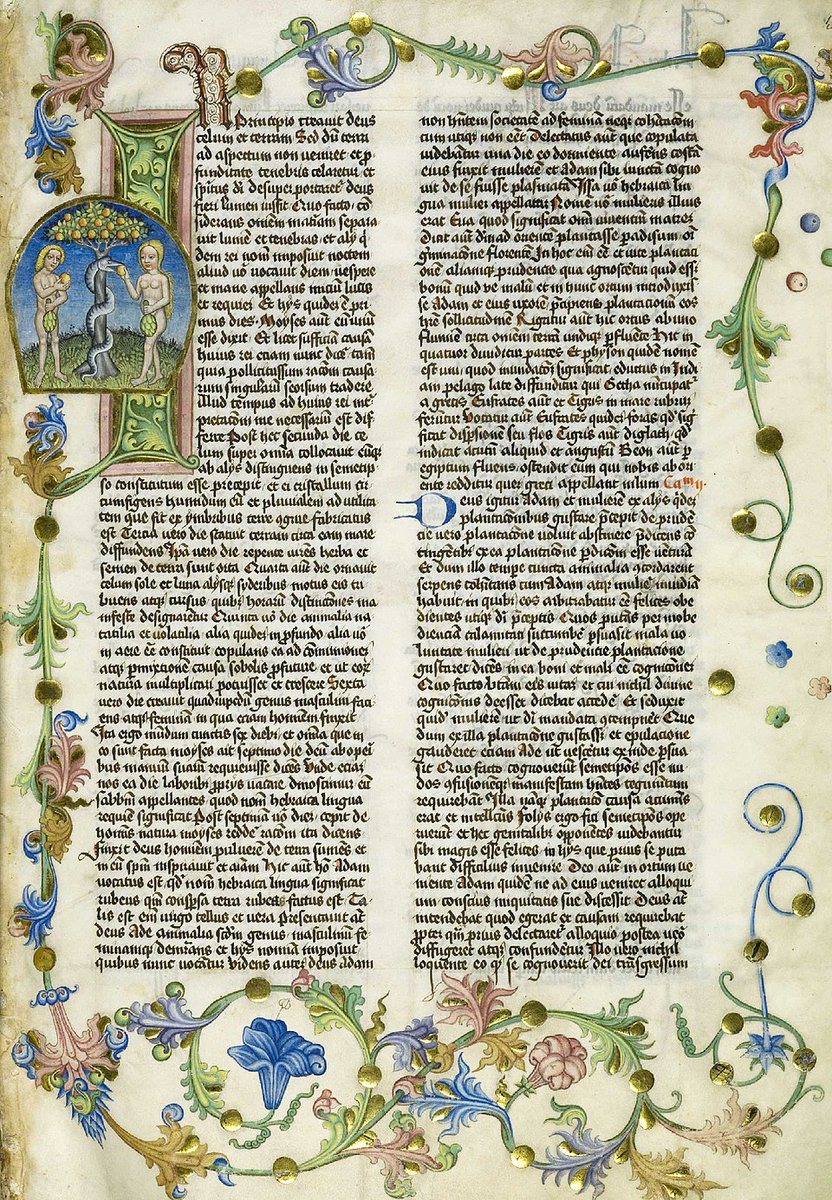 In Principio creavit deus
celum et terram Sed dū terra
ad aspectum non veniret et ꝓ
funditate tenebris celaretur et
spūs dī desuper portaret deus
fieri lumen iussit Quo facto cō
siderans omnem matiam separa
vit lumē et tenebras et aly qͥ
dem rei nom̄ imposuit noctem
aliud vō vocavit diem vespere
et mane appellans iniciū lucis
et requiei Et hys quidē ē pri
mus dies Moyses aut̄ eū unū
esse dixit Et licet sufficiā causā
huius rei etiam nunc dicē tam̄
quia pollicitus sum racōm causa
rum singularū seorsum tradere
illud tempus ad huius rei int̄
pretacōm me necessariū est dif
ferre Post hec secunda die ce
lum super omīa collocavit eūqꝫ
ab alys distinguens in semetip
so constitutum esse precepit et ei cristallum cir
cumfigens humidum eū et pluvialem ad utilita
tem que fit ex ymbribus terre ꝯgrue fabricatus
est Tercia vero die statuit terram circa eam mare
diffundens Ip̄a vero die repente vires herba et
semen de terra sunt orta Quarta aut̄ die ornavit
celum sole et luna alysqꝫ syderibus motus eis tri
buens atqꝫ cursus quibꝫ horarū distinctiones ma
nifeste designarētur Quinta vō die animalia na
tatilia et volatilia alia quidē in ꝓfundo alia vō
in aere cē constituit copulans ea ad cōmuniones
atqꝫ ꝑmixtionem causa sobolis ꝓfuture et ut eoꝝ
natura multiplicari potuisset et crescere Sexta
vero die creavit quadrupedū genus masculum faci
ens atqꝫ feminam in qua etiam hominē finxit
Ita ergo mūdum cunctis sex diebꝫ et omīa que in
eo sunt facta moyses ait septimo die deū ab operi
bus manuū suarū requievisse dicēs Unde et iā
nos ea die laboribꝫ ꝓprys vacare dinoscimur eū
sabbm̄ appellantes quod nom̄ hebraica lingua
requiem significat Post septimā vō diē cepit de
homīs natura moyses redde racōm ita dicens
Finxit deus hominē pulverem de terra sumēs et
in eū spm̄ inspiravit et aīam Hic aut̄ hō Adam
vocatus est qd nom̄ hebraica lingua significat
rubeus qm̄ conspersa terra rubea factus est Ta
lis est enī virgo tellus et vera presentavit aūt
deus Ade animalia scdm̄ genus masculinū fe
mininūqꝫ demr̄ans et hys nomīa imposuit
quibus nunc vocātur Videns autez deus Adam
non hn̄tem societatē ad feminā neqꝫ cohītacōm
cum utiqꝫ non eēt Delectatus aut̄ que copulata
videbantur una die eo dormiente auferens costā
eius finxit mulierē et Adam sibi iunctā cogno
vit de se fuisse plasmatā Issa vō hebraica lin
gua mulier appellatur Nomē vō mulieris illius
erat Eva quod significat oīm viventiū matrez
Dicit aut̄ dm̄ ad orientē plantasse ꝑadisum oī
germinacōne florentē In hoc enī cē et vite plantaci
onē aliamqꝫ prudentie qua agnoscetur quid esset
bonū quid ve malū et in hunc ortum introduxis
se Adam et eius uxorē p̄cipiens plantacionū eos
hr̄e sollicitudinē Rigatur aut̄ hic ortus ab uno
flumine circa omnem terrā undiqꝫ ꝑfluente Hic in
quatuor dividitur partes Et physon quidē nomē
est uni quod inundacōm significat eductus in Indi
am pelago late diffunditur qui Getha nūcupat̄
a grecis Eufrates aut̄ et Tigris in mare rubrū
ferūtur Vocatur aut̄ Eufrates quidē foras qd sig
ficat dispsionē seu flos Tigris aut̄ diglath qd
indicat acutū aliquid et angustū Geon aut̄ ꝑ
egiptum fluens ostendit eum qui nobis ab ori
ente redditur quē greci appellant nilum Cam ij.
Deus igitur Adam et mulierē ex alys qͥdez
plantacionibus gustare p̄cepit de pruden
cie vero plantacōne voluit abstinere p̄dicens cō
tingētibꝫ ex ea plantacōne ꝑdicōm esse venturā
Et dum illo tempe cuncta animalia ꝯcordarent
serpens cohītans cum Adam atqꝫ muliē invidiā
habuit in quibꝫ eos arbitrabatur cē felices obe
dientes utiqꝫ dī p̄ceptis Quos putās per inobe
dienciā calamitati succumbē ꝑsuasit mala vo
luntate mulieri ut de prudencie plantacione
gustaret dicēs in ea boni et mali eē cognicionē
Quo facto btam eis vitaz et cui nichil divine
cognicōnis deesset dicebat accedē Et seduxit
quidē mulierē ut dī mandata ꝯtempnēt Que
dum ex illa plantacōne gustasset et epulacione
gauderet etiam Ade ut vescerēt̄ exinde ꝑsua
sit Quo facto cognoverūt semetipsos esse nu
dos ꝯfusionēqꝫ manifestam hn̄tes tegumentum
requirebant Illa naqꝫ plantacō causa acuminis
erat et intellectus Folys ergo fici semetipsos ope
ruerūt et hec genitalibꝫ opponētes videbantur
sibi magis esse felices in hys que prius se puta
bant difficilius invenire Deo aut̄ in ortum ve
niente Adam quidē ne ad eius veniret alloqui
um conscius iniquitatis sue discessit Deus aut̄
intendebat quod egerat et causam requirebat
ꝓpter qm̄ prius delectaret̄ alloquio postea vero
diffugeret atqꝫ confundetur Illo vero nichil
loquente eo qꝫ se cognoverit dei trāsgressum